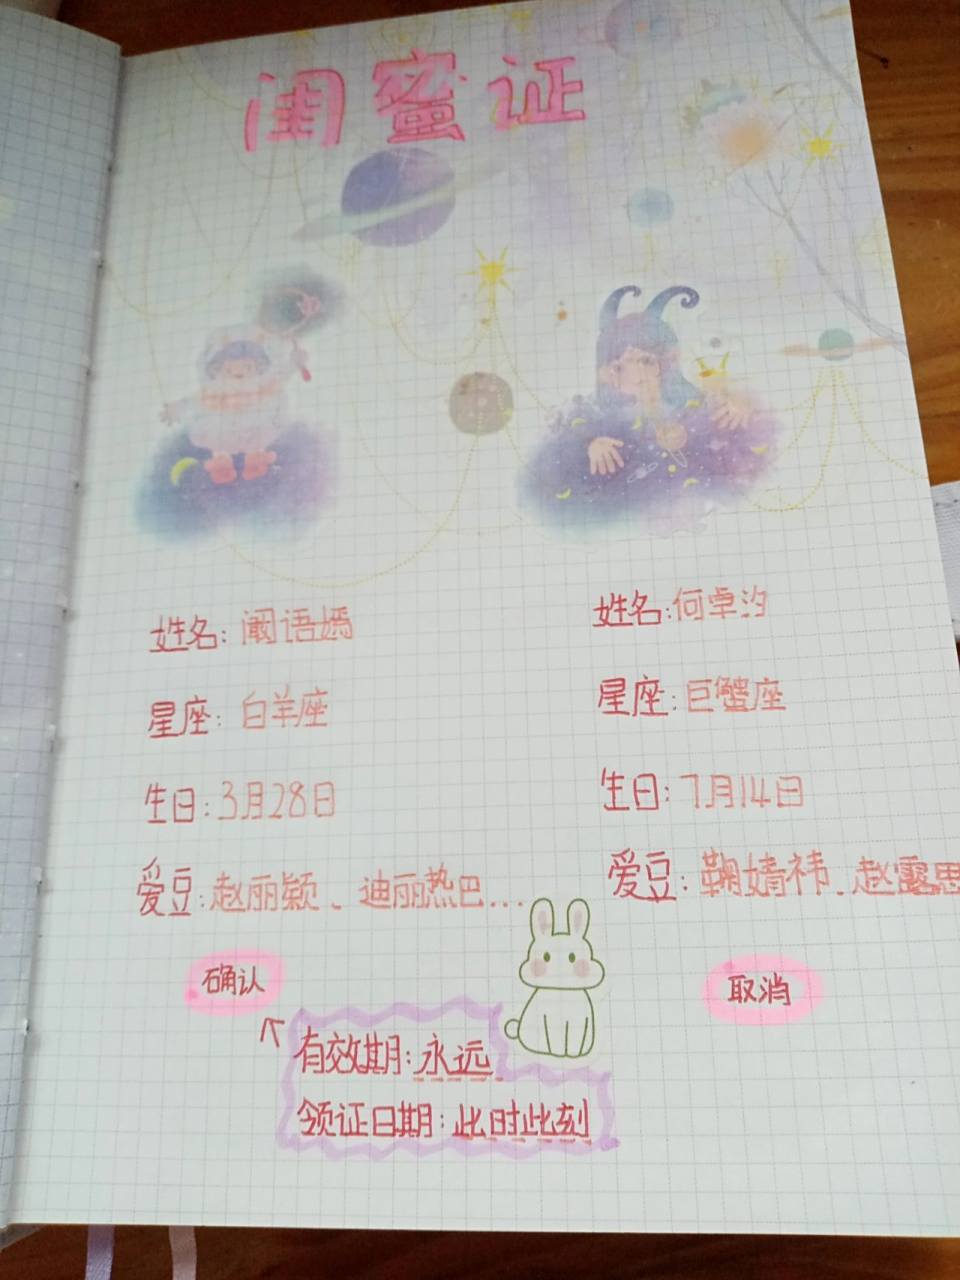 闺蜜证
姓名：阚语嫣
姓名：何卓汐
星座：白羊座
星座：巨蟹座
生日：3月28日
生日：7月14日
爱豆：赵丽颖、迪丽热巴...
爱豆：鞠婧祎、赵露思
确认
取消
有效期：永远
领证日期：此时此刻